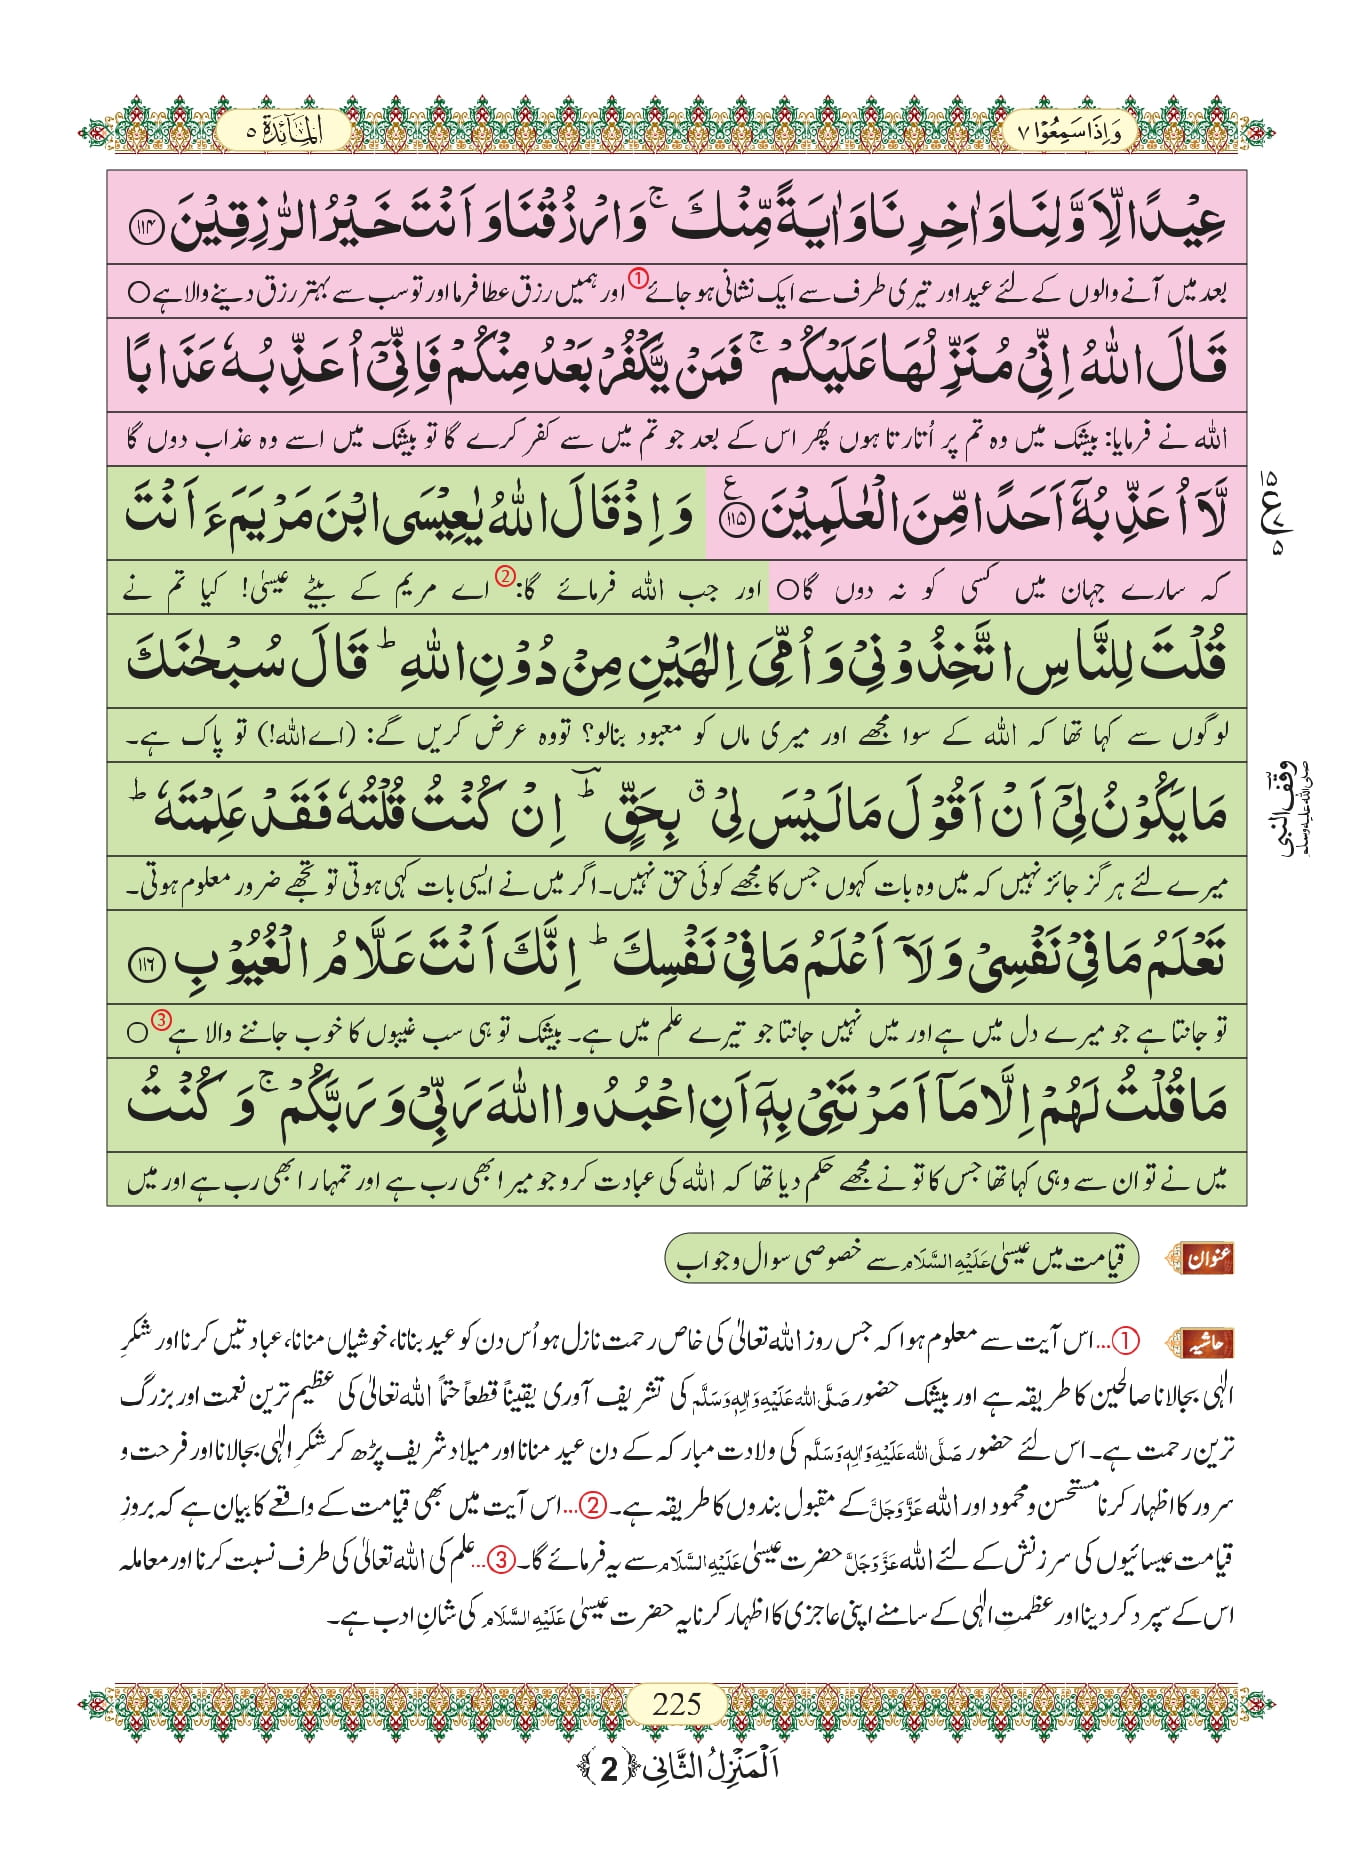 وَاِذَا سَمِعُوۡا ۷
اَلْمَآئِدَۃ ۵
عِیۡدًا لِّاَوَّلِنَا وَاٰخِرِنَا وَاٰیَۃً مِّنۡکَ ۚ وَارْزُقْنَا وَاَنۡتَ خَیۡرُ الرّٰزِقِیۡنَ ﴿۱۱۴﴾
بعد میں آنے والوں کے لئے عید اور تیری طرف سے ایک نشانی ہوجائے ① اور ہمیں رزق عطا فرما اور تو سب سے بہتر رزق دینے والا ہے ○
قَالَ اللہُ اِنِّیۡ مُنَزِّلُہَا عَلَیۡکُمْ ۚ فَمَنۡ یَّکْفُرْ بَعْدُ مِنۡکُمْ فَاِنِّیۡۤ اُعَذِّبُہٗ عَذَابًا
اللہ نے فرمایا: بیشک میں وہ تم پر اُتارتا ہوں پھر اس کے بعد جو تم میں سے کفر کرے گا تو بیشک میں اسے وہ عذاب دوں گا
لَّاۤ اُعَذِّبُہٗۤ اَحَدًا مِّنَ الْعٰلَمِیۡنَ ﴿۱۱۵﴾ ع وَ اِذْ قَالَ اللہُ یٰعِیۡسَی ابْنَ مَرْیَمَ ءَاَنۡتَ
۱۵
ع
۷
۵
کہ سارے جہان میں کسی کو نہ دوں گا ○ اور جب اللہ فرمائے گا: ② اے مریم کے بیٹے عیسیٰ! کیا تم نے
قُلْتَ لِلنَّاسِ اتَّخِذُوۡنِیۡ وَ اُمِّیَ اِلٰہَیۡنِ مِنۡ دُوۡنِ اللہِ ؕ قَالَ سُبْحٰنَکَ
لوگوں سے کہا تھا کہ اللہ کے سوا مجھے اور میری ماں کو معبود بنالو؟ تو وہ عرض کریں گے: (اے اللہ!) تو پاک ہے۔
مَا یَکُوۡنُ لِیۡۤ اَنْ اَقُوۡلَ مَا لَیۡسَ لِیۡ ٭ بِحَقٍّ ؕ اِنۡ کُنۡتُ قُلْتُہٗ فَقَدْ عَلِمْتَہٗ ؕ
وقف النبی صلی اللہ علیہ وسلم
میرے لئے ہرگز جائز نہیں کہ میں وہ بات کہوں جس کا مجھے کوئی حق نہیں۔ اگر میں نے ایسی بات کہی ہوتی تو تجھے ضرور معلوم ہوتی۔
تَعْلَمُ مَا فِیۡ نَفْسِیۡ وَ لَاۤ اَعْلَمُ مَا فِیۡ نَفْسِکَ ؕ اِنَّکَ اَنۡتَ عَلَّامُ الْغُیُوۡبِ ﴿۱۱۶﴾
تو جانتا ہے جو میرے دل میں ہے اور میں نہیں جانتا جو تیرے علم میں ہے۔ بیشک تو ہی سب غیبوں کا خوب جاننے والا ہے ③ ○
مَا قُلْتُ لَہُمْ اِلَّا مَاۤ اَمَرْتَنِیۡ بِہٖۤ اَنِ اعْبُدُوا اللہَ رَبِّیۡ وَ رَبَّکُمْ ۚ وَ کُنۡتُ
میں نے تو ان سے وہی کہا تھا جس کا تو نے مجھے حکم دیا تھا کہ اللہ کی عبادت کرو جو میرا بھی رب ہے اور تمہارا بھی رب ہے اور میں
عنوان
قیامت میں عیسیٰ عَلَیْہِ السَّلَام سے خصوصی سوال و جواب
حاشیہ
①...اس آیت سے معلوم ہوا کہ جس روز اللہ تعالیٰ کی خاص رحمت نازل ہو اُس دن کو عید بنانا، خوشیاں منانا، عبادتیں کرنا اور شکرِ
الٰہی بجالانا صالحین کا طریقہ ہے اور بیشک حضور صَلَّی اللہ عَلَیْہِ وَاٰلِہٖ وَسَلَّم کی تشریف آوری یقیناً قطعاً حتماً اللہ تعالیٰ کی عظیم ترین نعمت اور بزرگ
ترین رحمت ہے۔ اس لئے حضور صَلَّی اللہ عَلَیْہِ وَاٰلِہٖ وَسَلَّم کی ولادت مبارکہ کے دن عید منانا اور میلاد شریف پڑھ کر شکرِ الٰہی بجالانا اور فرحت و
سرور کا اظہار کرنا مستحسن و محمود اور اللہ عَزَّوَجَلَّ کے مقبول بندوں کا طریقہ ہے۔ ②...اس آیت میں بھی قیامت کے واقعے کا بیان ہے کہ بروزِ
قیامت عیسائیوں کی سرزنش کے لئے اللہ عَزَّوَجَلَّ حضرت عیسیٰ عَلَیْہِ السَّلَام سے یہ فرمائے گا۔ ③...علم کی اللہ تعالیٰ کی طرف نسبت کرنا اور معاملہ
اس کے سپرد کر دینا اور عظمتِ الٰہی کے سامنے اپنی عاجزی کا اظہار کرنا یہ حضرت عیسیٰ عَلَیْہِ السَّلَام کی شانِ ادب ہے۔
225
اَلْمَنْزِلُ الثَّانِی ﴿2﴾